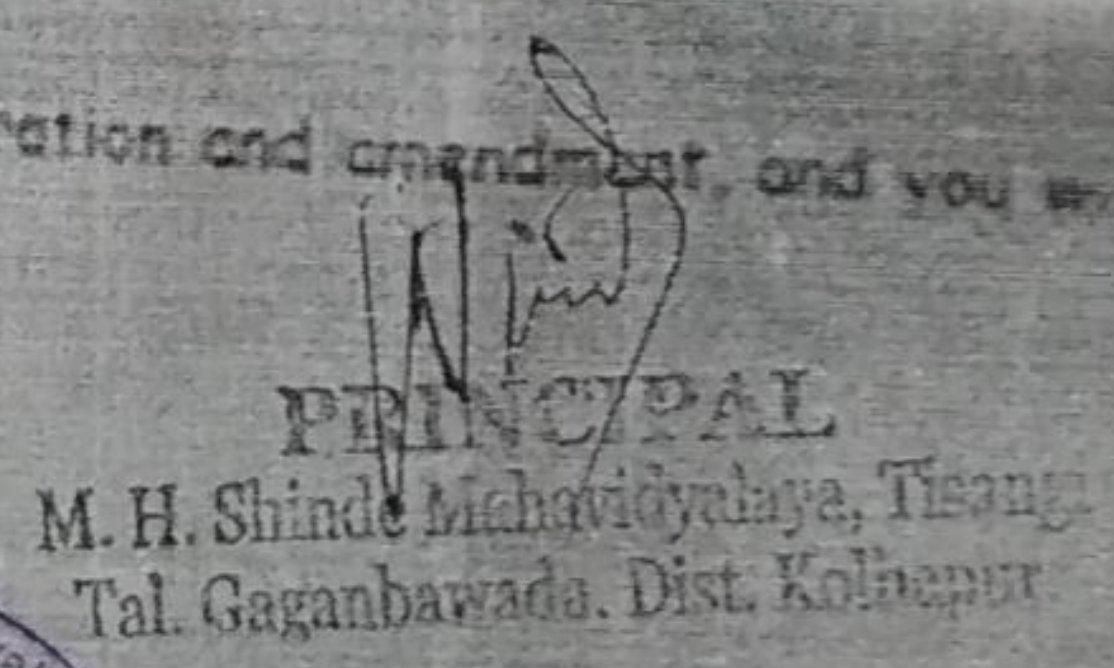 and amendment, and you
PRINCIPAL
M. H. Shinde Mahavidyalaya, Tisangi
Tal. Gaganbawada. Dist. Kolhapur